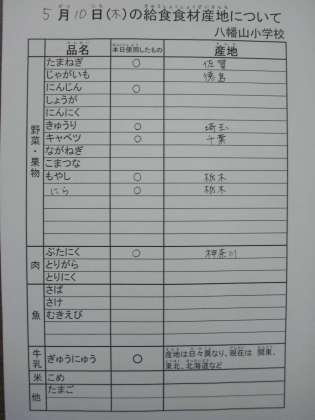 5月10日(木)の給食食材産地について
八幡山小学校
品名 本日使用したもの 産地
野菜・果物
たまねぎ ○ 佐賀
じゃがいも 徳島
にんじん ○
しょうが
にんにく
きゅうり ○ 埼玉
キャベツ ○ 千葉
ながねぎ
こまつな
もやし ○ 栃木
にら ○ 栃木
肉
ぶたにく ○ 神奈川
とりがら
とりにく
魚
さば
さけ
むきえび
牛乳 ぎゅうにゅう ○ 産地は日々異なり、現在は 関東、
東北、北海道など
米 こめ
他 たまご